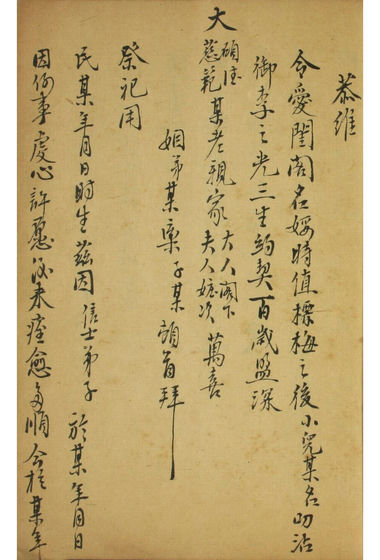 恭維
令愛閨閣名媛時值標梅之後小兒某名叨沾
御李之光三生約契百歲盟深
大碩德慈範某老親家大人閣下夫人妝次萬喜
姻弟某率子某頓首拜
祭祀用
民某年月日時生茲因信士弟子 於某年月日
因何事虔心許愿後来痊愈多順今於某年